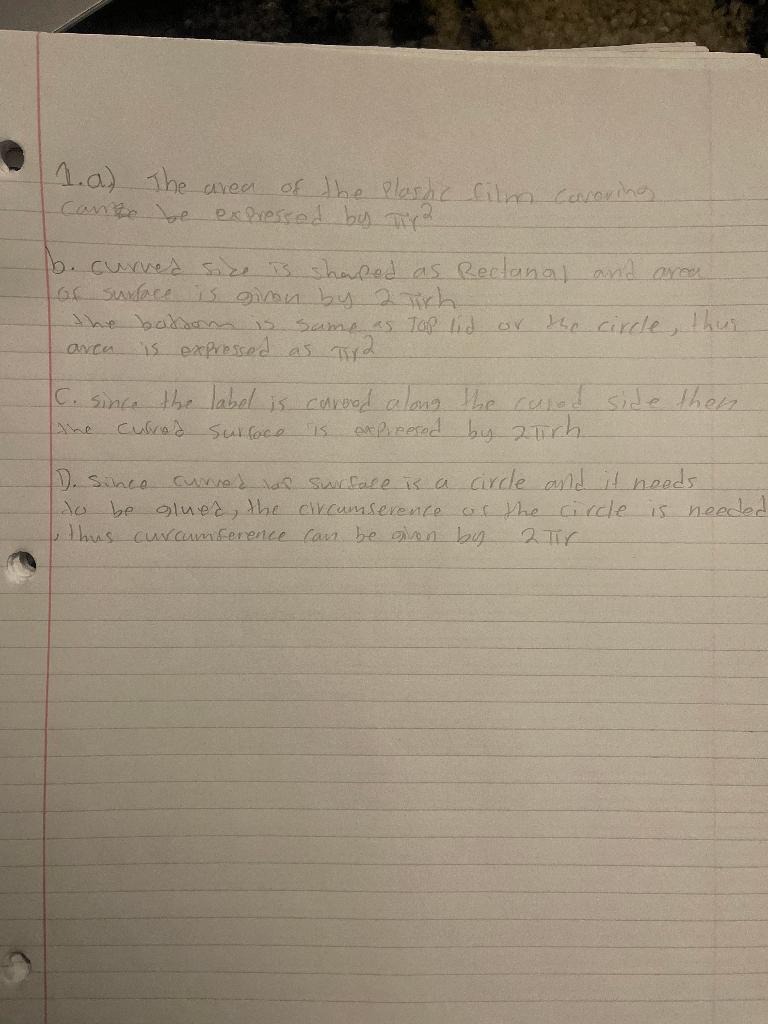 1.a) The area of the Plastic film covering
can be expressed by πr²
b. curved size is shaped as Rectanal and area
of surface is given by 2πrh
the bottom is same as Top lid or the circle, thus
area is expressed as πr²
C. since the label is curved along the cured side then
the curved surface is expressed by 2πrh
D. since curved surface is a circle and it needs
to be glued, the circumserence of the circle is needed
, thus curcumference can be given by 2πr